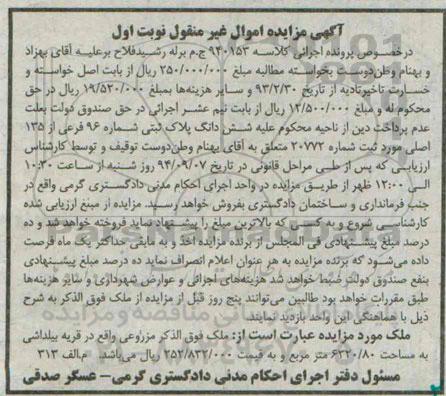 آگهی مزایده اموال غیر منقول نوبت اول
درخصوص پرونده اجرائی کلاسه ۹۴۰۱۵۳ ج.م برله رشیدفلاح برعلیه آقای بهزاد
و بهنام وطن‌دوست بخواسته مطالبه مبلغ ۲۵۰/۰۰۰/۰۰۰ ریال از بابت اصل خواسته و
خسارت تاخیرتادیه از تاریخ ۹۳/۲/۳۰ و سایر هزینه‌ها بمبلغ ۱۹/۵۲۰/۰۰۰ ریال در حق
محکوم له و مبلغ ۱۲/۵۰۰/۰۰۰ ریال از بابت نیم عشر اجرائی در حق صندوق دولت بعلت
عدم پرداخت دین از ناحیه محکوم علیه شش دانگ پلاک ثبتی شماره ۹۶ فرعی از ۱۳۵
اصلی مورد ثبت شماره ۲۰۷۷۲ متعلق به آقای بهنام وطن‌دوست توقیف و توسط کارشناس
ارزیابی که پس از طی مراحل قانونی در تاریخ ۹۴/۰۹/۰۷ روز شنبه از ساعت ۱۰:۳۰
الی ۱۲:۰۰ ظهر از طریق مزایده در واحد اجرای احکام مدنی دادگستری گرمی واقع در
جنب فرمانداری و ساختمان دادگستری بفروش خواهد رسید. مزایده از مبلغ ارزیابی شده
کارشناسی شروع و به کسی که بالاترین مبلغ را پیشنهاد نماید فروخته خواهد شد و ده
درصد مبلغ پیشنهادی فی المجلس از برنده مزایده اخذ و به مابقی حداکثر یک ماه فرصت
داده می‌شود که برنده مزایده به هر عنوان اعلام انصراف نماید ده درصد مبلغ پیشنهادی
بنفع صندوق دولت ضبط خواهد شد هزینه‌های اجرائی و عوارض شهرداری و سایر هزینه‌ها
طبق مقررات خواهد بود طالبین می‌توانند پنج روز قبل از مزایده از ملک فوق الذکر به شرح
ذیل با هماهنگی این واحد بازدید نمایند.
ملک مورد مزایده عبارت است از: ملک فوق الذکر مزروعی واقع در قریه بیلداشی
به مساحت ۶۳۲۰/۸۰ متر مربع و به قیمت ۲۵۲/۸۳۲/۰۰۰ ریال می‌باشد. م.الف ۳۱۳
مسئول دفتر اجرای احکام مدنی دادگستری گرمی– عسگر صدقی